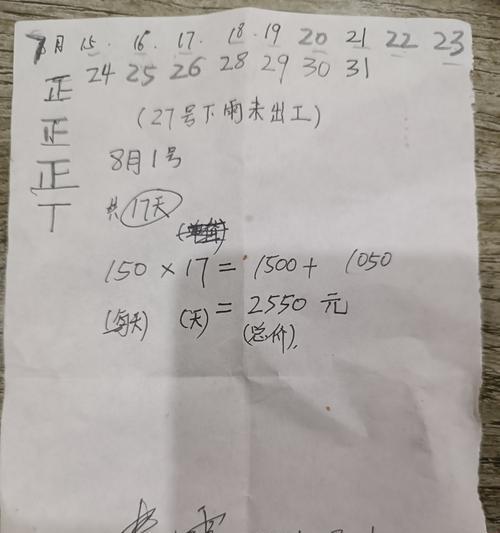 7月 15. 16. 17. 18. 19 20 21 22 23
24 25 26 28 29 30 31
正
正
正
丅
(27号下雨未出工)
8月1号
共17天
150 × 17 = 1500 + 1050
(每天) (天) = 2550 元
(总价).